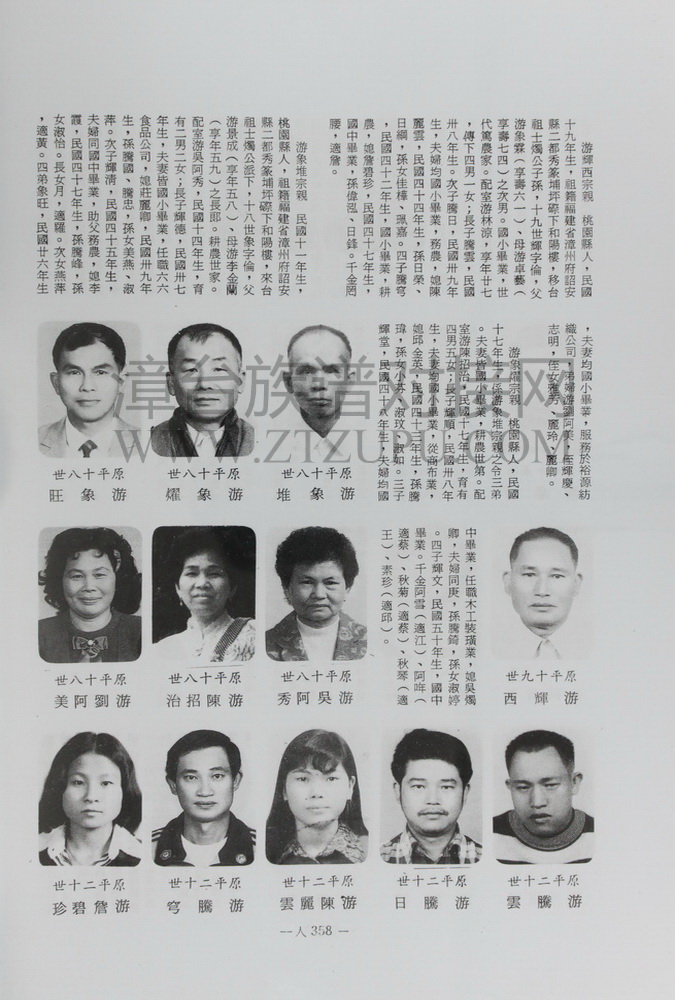 游輝西宗親　桃園縣人，民國
十九年生，祖籍福建省漳州府詔安
縣二都秀篆埔坪磜下和陽樓，移台
祖士燭公子孫，十九世輝字倫，父
游象霖（享壽六一）、母游卓藝（
享壽七四）之次男。國小畢業，世
代篤農家。配室游林涼，享年廿七
，傳下四男一女；長子騰雲，民國
卅八年生。次子騰日，民國卅九年
生，夫婦均國小畢業，務農，媳陳
麗雲，民國四十四年生，孫日榮、
日綱，孫女佳樟、珮嘉。四子騰穹
，民國四十二年生，國小畢業，耕
農，媳詹碧珍，民國四十七年生，
國中畢業，孫偉泓、日鋒。千金罔
腰，適詹。
游象堆宗親　民國十一年生，
桃園縣人，祖籍福建省漳州府詔安
縣二都秀篆埔坪磜下和陽樓，來台
祖士燭公派下，十八世象字倫，父
游景成（享年五八）、母游李金蘭
（享年五九）之長郎。耕農世家。
配室游吳阿秀，民國十四年生，育
有二男二女；長子輝德，民國卅七
年生，夫妻皆國小畢業，任職六六
食品公司，媳莊麗卿，民國卅九年
生，孫騰國、騰忠，孫女美燕、淑
萍。次子輝清，民國四十五年生，
夫婦同國中畢業，助父務農，媳李
霞，民國四十七年生，孫騰峰，孫
女淑怡。長女月，適羅。次女燕萍
，適黃。四弟象旺，民國廿六年生
，夫妻均國小畢業，服務於裕源紡
織公司，弟婦游劉阿美，侄輝慶、
志明，侄女雅芳、麗玲、麗卿。
游象燿宗親　桃園縣人，民國
十七年生，係游象堆宗親之令三弟
。夫妻皆國小畢業，耕農世第。配
室游陳招治，民國十七年生，育有
四男五女；長子輝順，民國卅八年
生，夫妻均國小畢業，從商布業，
媳邱金英，民國四十一年生，孫騰
瑋，孫女小芬、淑玟、淑如。三子
輝堂，民國四十八年生，夫婦均國
中畢業，任職木工裝璜業，媳吳燭
卿，夫婦同庚，孫騰錡，孫女淑婷
。四子輝文，民國五十年生，國中
畢業。千金阿雪（適江）、阿哖（
適蔡）、秋菊（適蔡）、秋琴（適
王）、素珍（適邱）。
世八十平原
旺象游
世八十平原
燿象游
世八十平原
堆象游
世八十平原
美阿劉游
世八十平原
治招陳游
世八十平原
秀阿吳游
世九十平原
西輝游
世十二平原
珍碧詹游
世十二平原
穹騰游
世十二平原
雲麗陳游
世十二平原
日騰游
世十二平原
雲騰游
— 人 358 —
漳台族谱对接网
WWW.ZTZUPU.COM